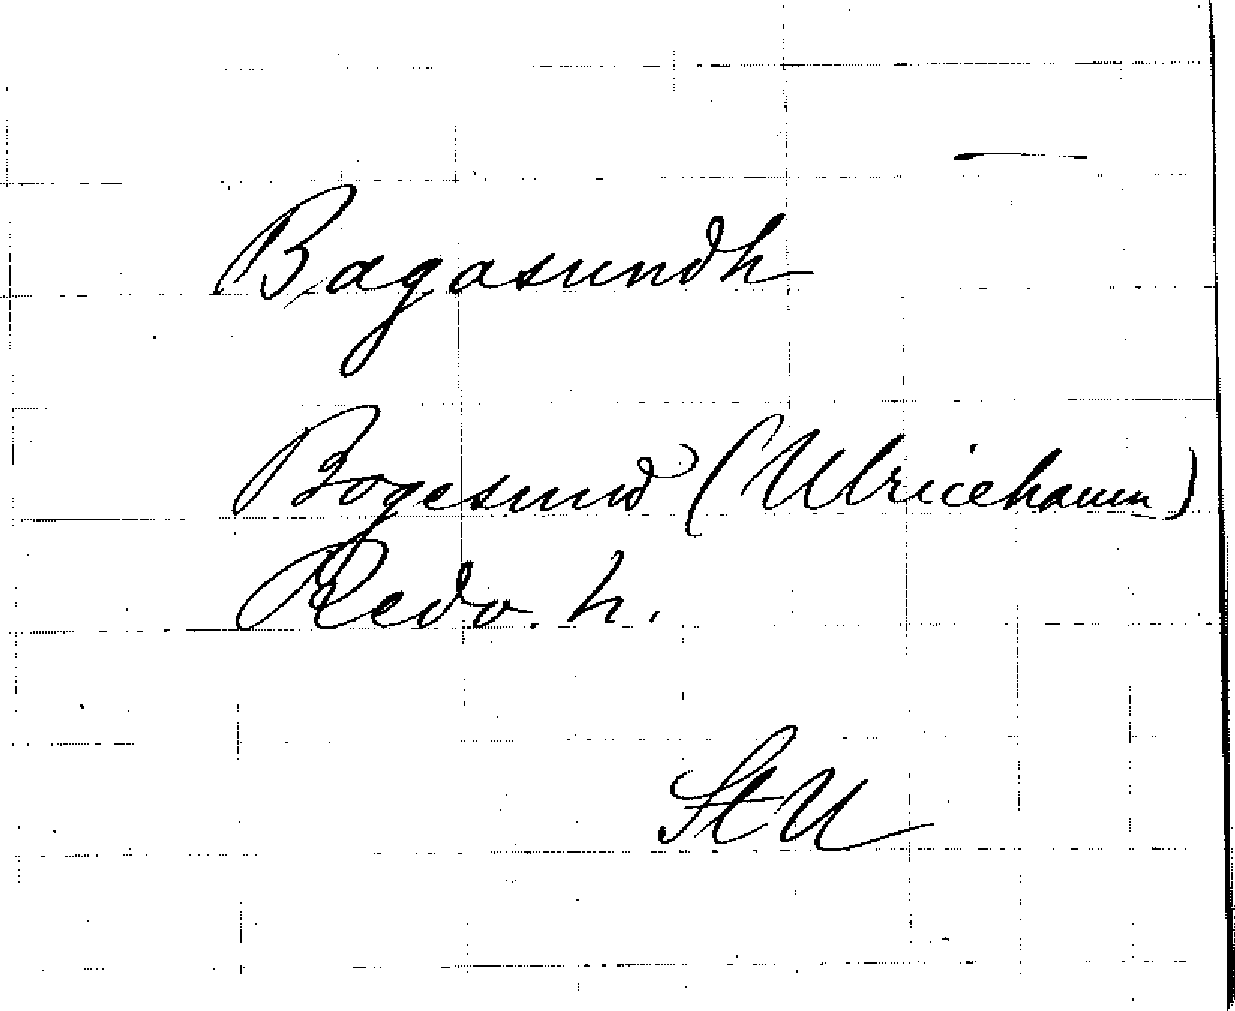 Bagasundh
Bogesund (Ulricehamn)
Redv. h.
StU